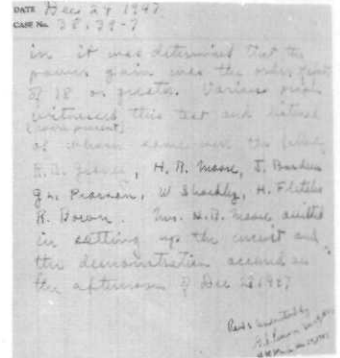 DATE Dec 24 1947
CASE No. 38139-7
in it was determined that the
power gain was the order
of 18 or greater. Various people
witnessed this test and listened
(some present)
of whom some were the following
R.B. Gibney, H.R. Moore, J. Bardeen
G.L. Pearson, W Shockley, H. Fletcher
R. Bown. Mr. H.R. Moore assisted
in setting up the circuit and
the demonstration occurred on
the afternoon of Dec 23 1947
Read & understood by